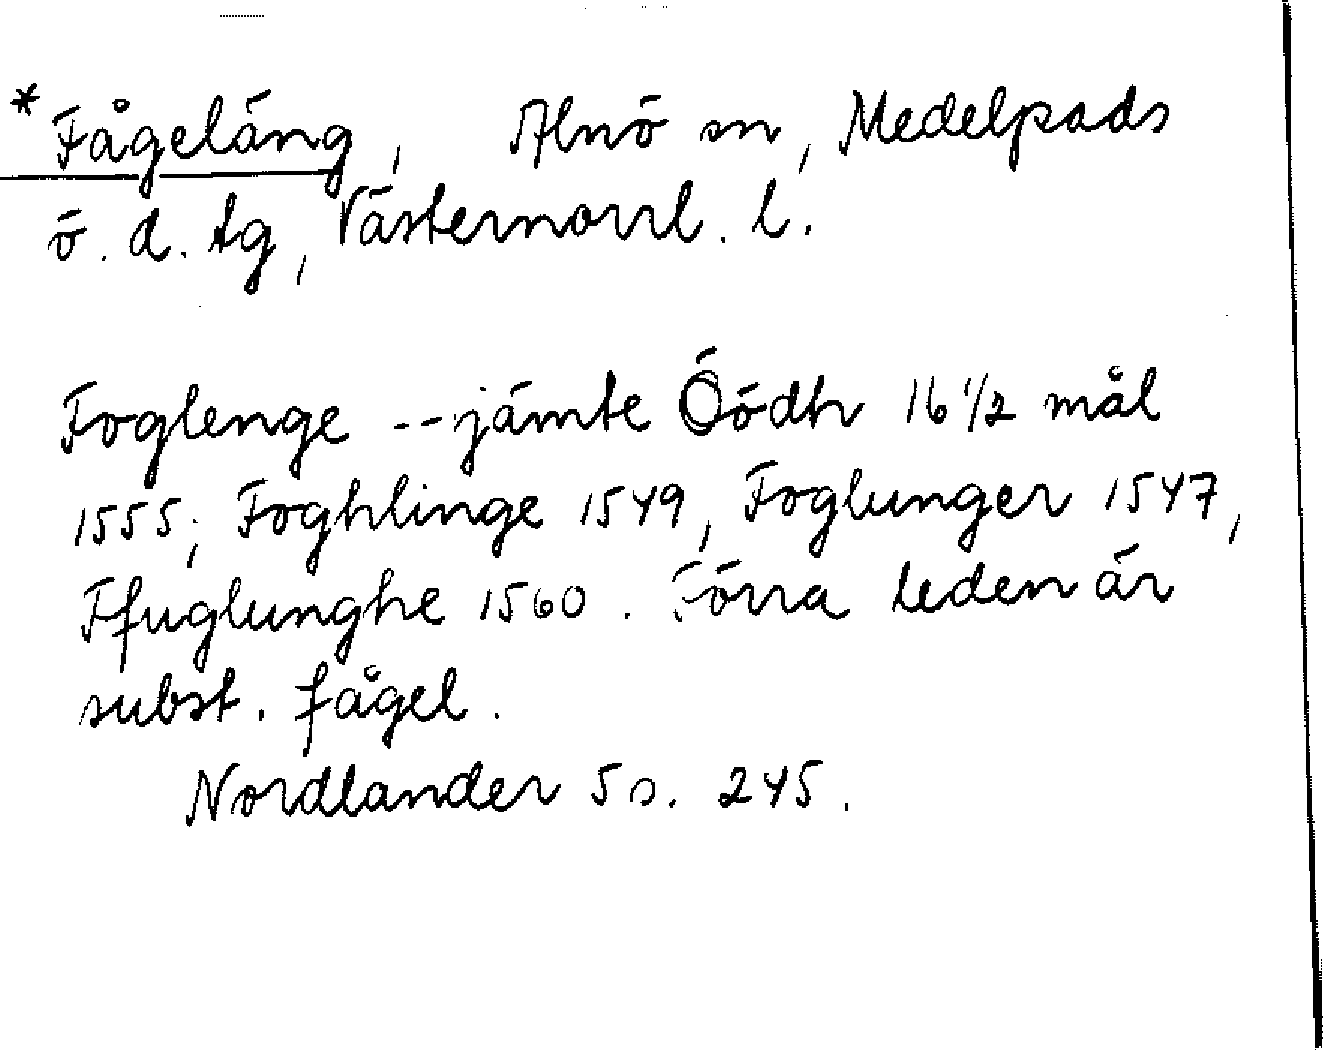 * Fågeläng, Alnö sn, Medelpads
ö. d. tg, Västernorrl. l.
Foglenge -- jämte Öödh 16 1/2 mål
1555; Foghlinge 1549, Foglunger 1547,
Ffuglunghe 1560. Förra leden är
subst. fågel.
Nordlander 5 s. 245.